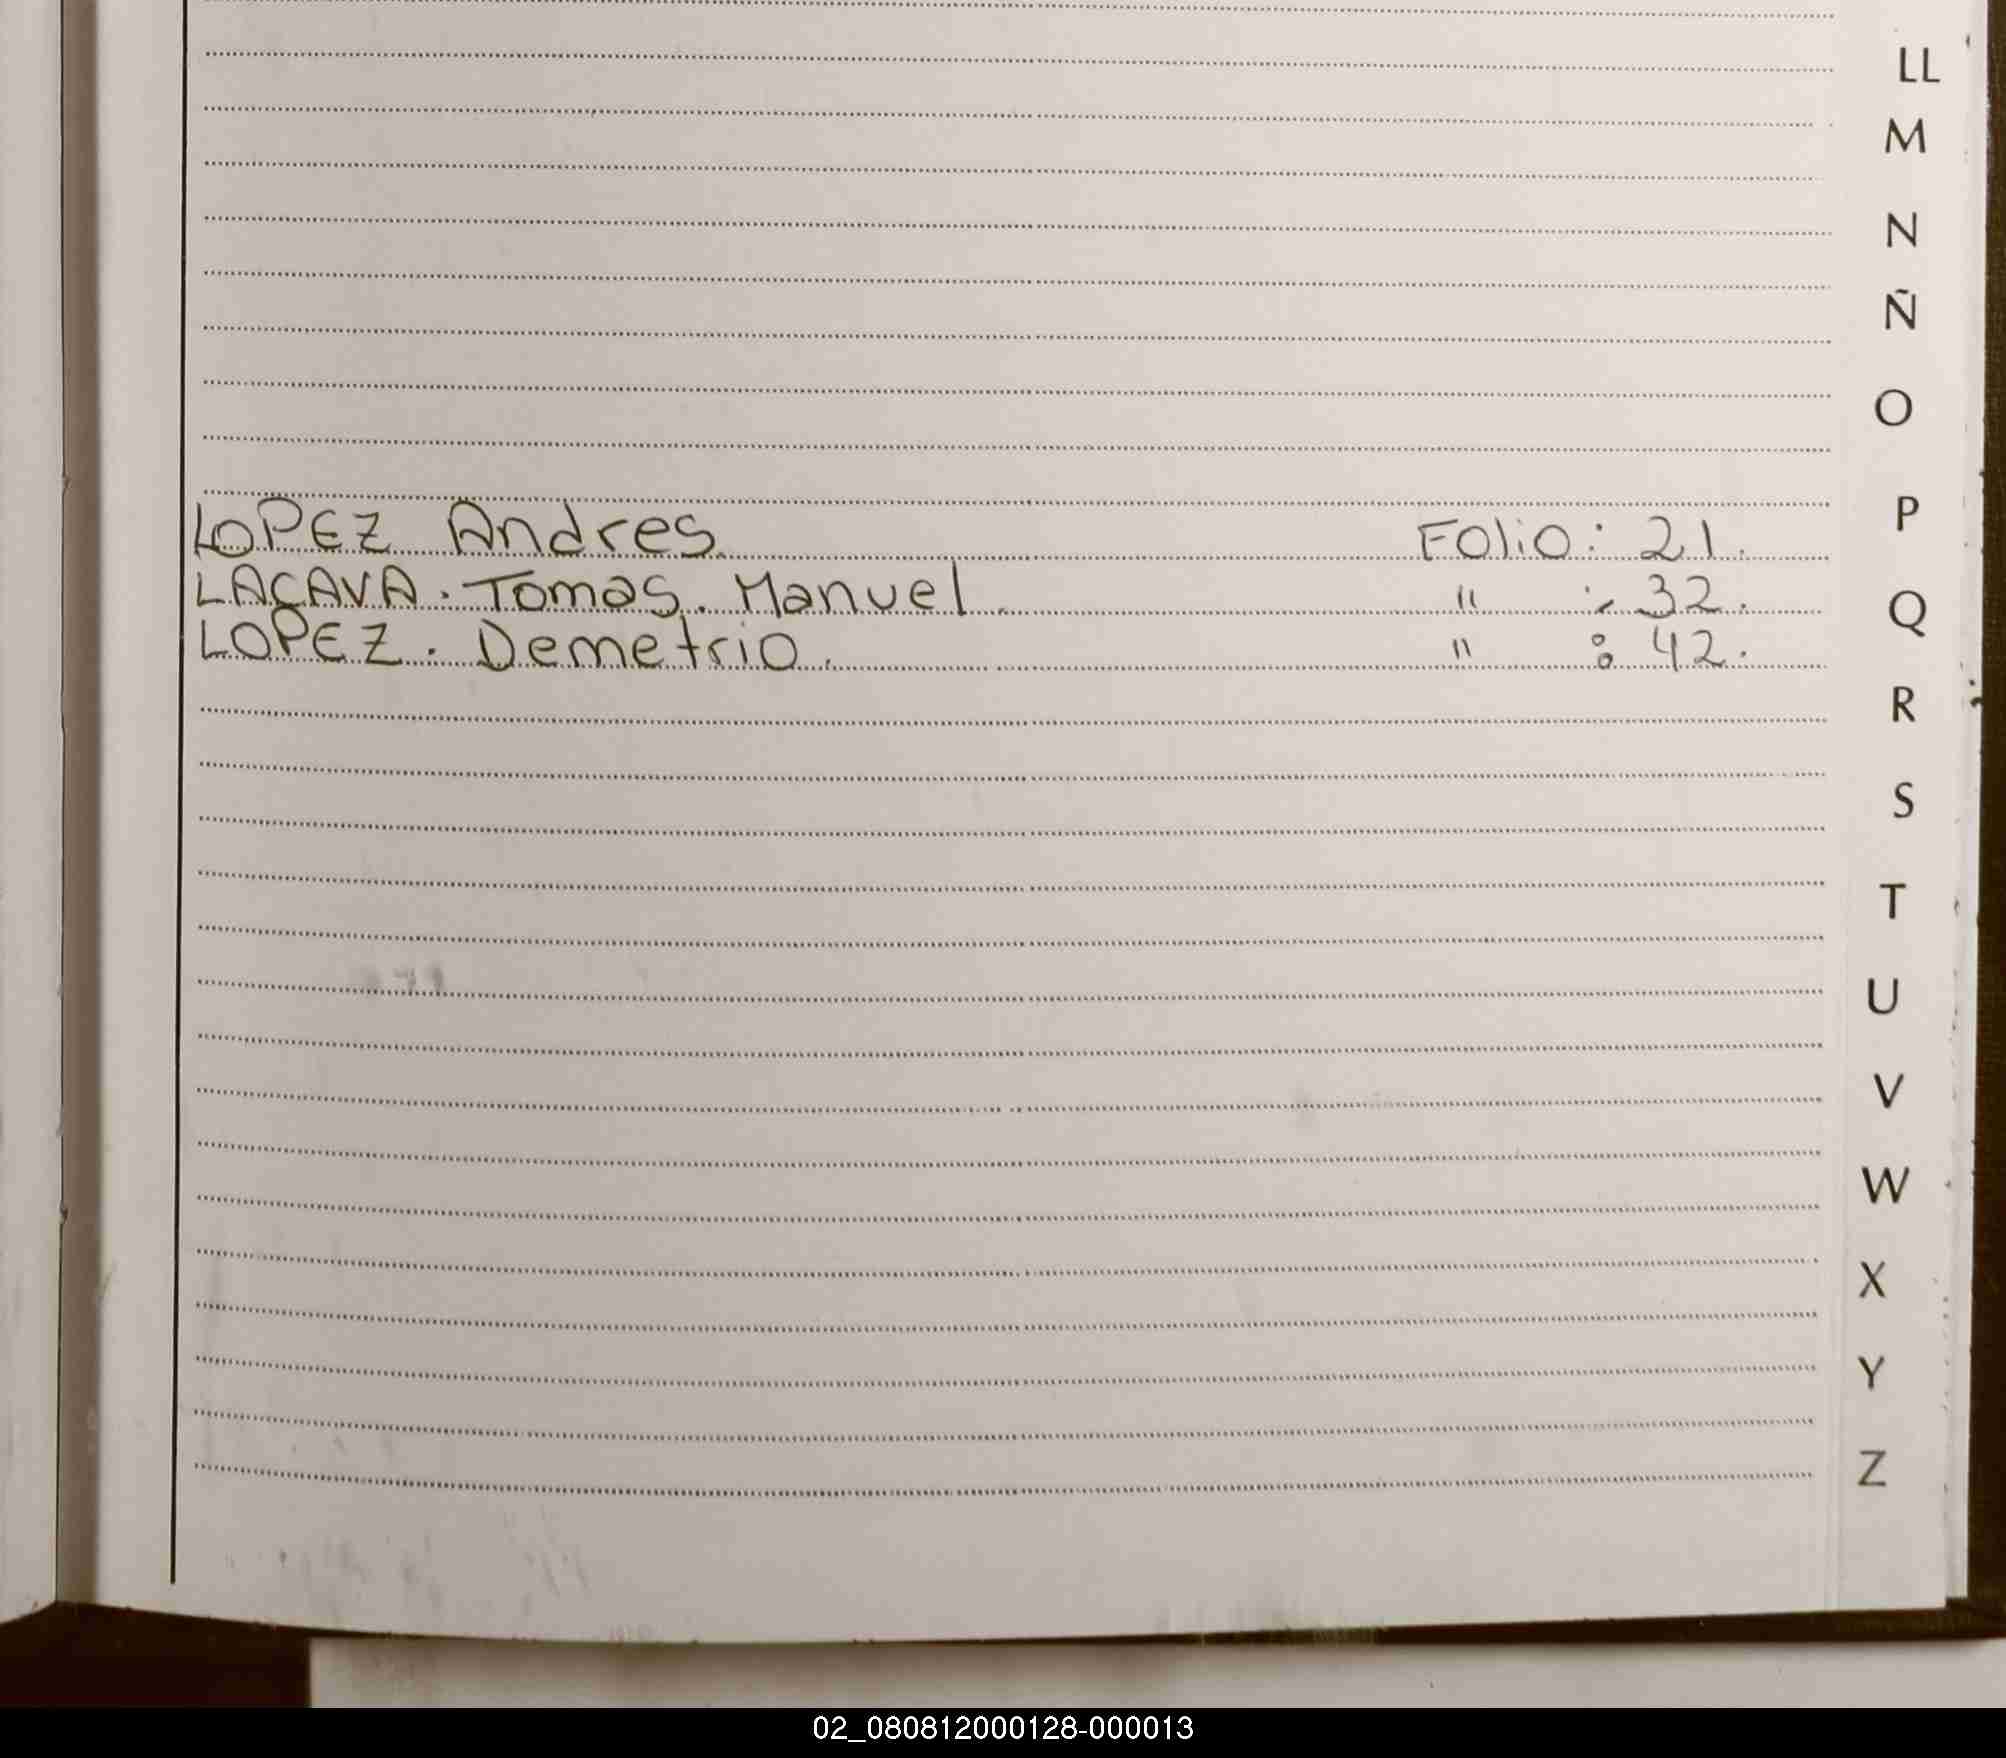 LL
M
N
Ñ
O
P
LOPEZ Andres Folio: 21.
LACAVA. Tomas. Manuel. " : 32.
Q
LOPEZ. Demetrio. " : 42.
R
S
T
U
V
W
X
Y
Z
02_080812000128-000013